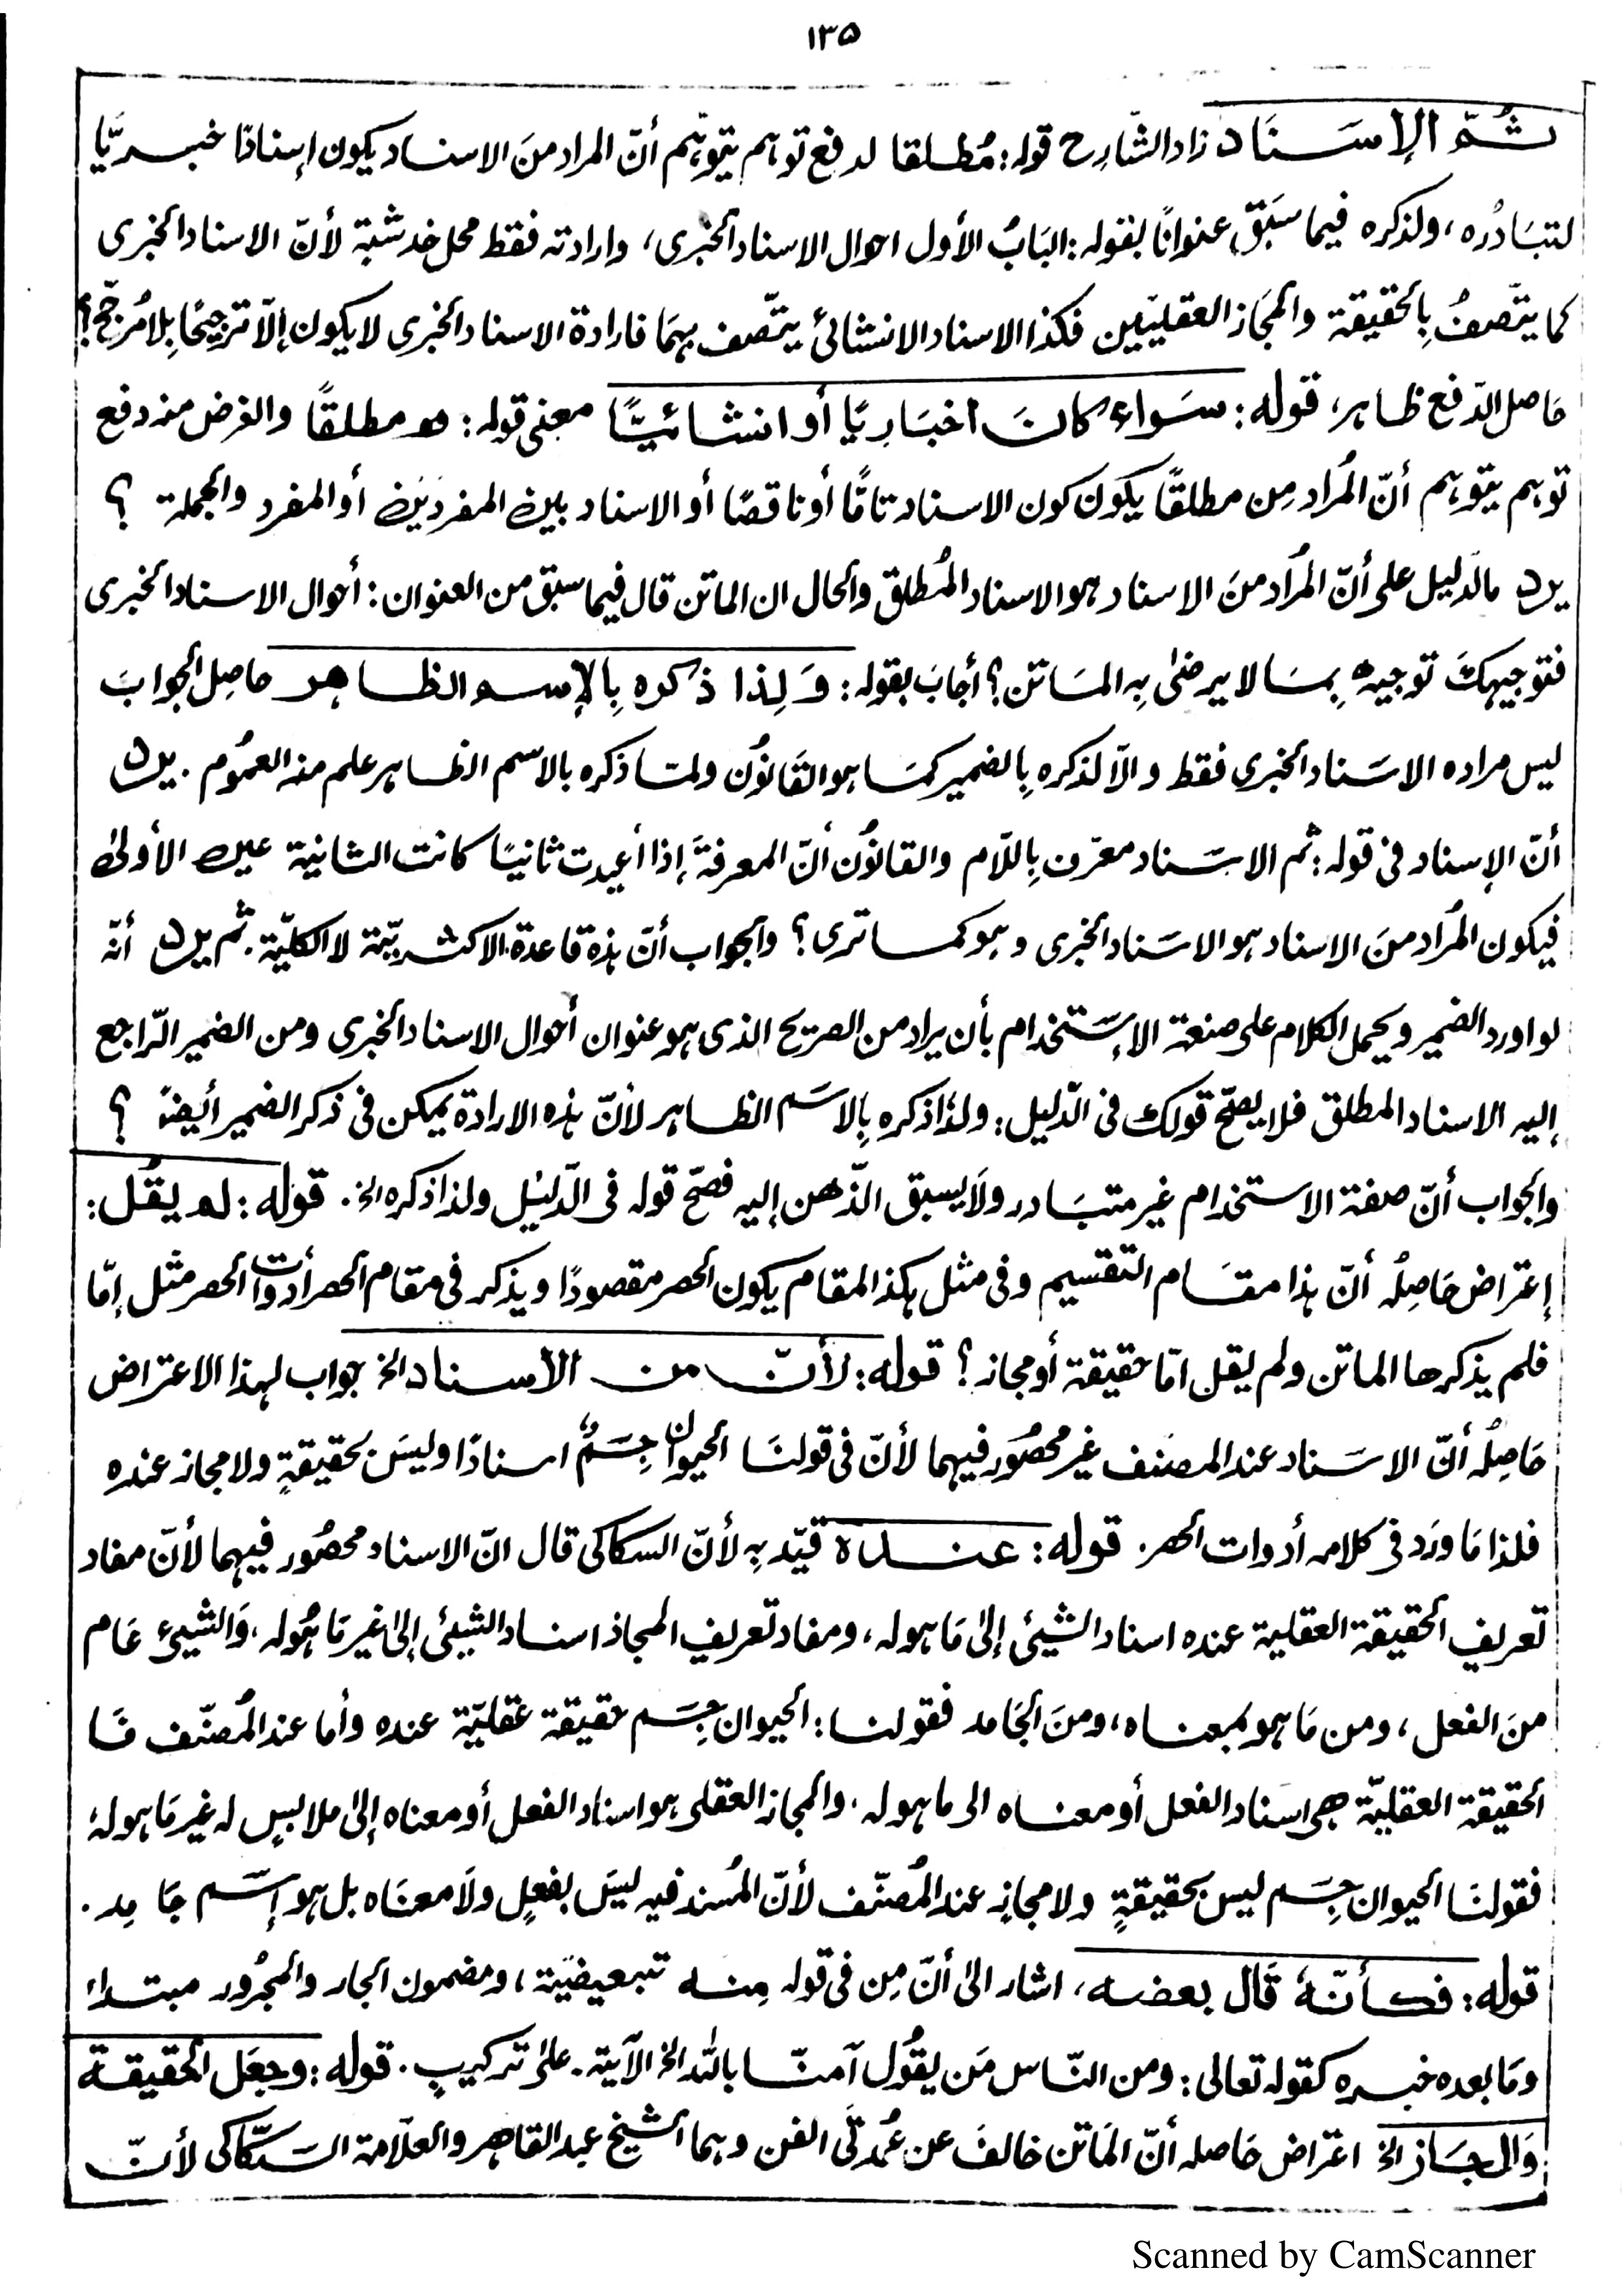 ۱۳۵
ثُمّ الإسنَاد زاد الشّارِح قوله: مُطلقا لدفع توهم يتوهّم أنّ المراد منَ الاسناد يكون إسنادًا خبريًّا
لتبَادُره، ولذكره فيما سبَق عنوانًا بقوله: البَابُ الأول احوال الاسناد الخبرى، وارادته فقط محل خدشة لأنّ الاسناد الخبرى
كما يتّصفُ بِالحقيقة والمجَاز العقليّين فكذا الاسناد الانشائىّ يتّصف بهمَا فارادة الاسناد الخبرى لا يكون إلّا ترجيحًا بِلا مُرجّح؟
حَاصل الدّفع ظاهر، قوله: سَواء كانَ اخبَارِيًا أو انشائيًّا معنى قوله: هو مطلقًا والغرض منه دفع
توهم يتوهم أنّ المُراد مِن مطلقًا يكون كون الاسناد تامًّا أو ناقصًا أو الاسناد بين المفردَين أو المفرد والجملة ؟
يرد مالدّليل على أنّ المُراد منَ الاسناد هو الاسناد المُطلق والحال ان الماتن قال فيما سبق من العنوان: أحوال الاسناد الخبرى
فتوجيهكَ توجيه بِمَا لا يرضىٰ بِه المَاتن؟ أجابَ بقوله: وَلِذا ذكره بِالإسم الظاهر حاصِل الجوابَ
ليس مراده الاسَناد الخبرى فقط والّا لذكره بِالضمير كمَا هو القَانوُن ولمّا ذكره بالاسم الظاهر علم منه العمُوم. يرد
أنّ الإسناد فى قوله: ثم الاسَناد معرّف بِاللّام والقانوُن أنّ المعرفةَ إذا أعيدت ثانيًا كانت الثانية عين الأولىٰ
فيكون المُراد منَ الاسناد هو الاسَناد الخبرى وهو كما ترى؟ والجواب أنّ هذه قاعدة الاكثريّة لا الكليّة. ثم يرد أنّه
لو اورد الضمير ويحمل الكلام على صنعة الإستخدام بأن يراد من الصريح الذى هو عنوان أحوال الاسناد الخبرى ومن الضمير الرّاجع
إليه الاسناد المطلق فلا يصحّ قولك فى الدّليل: ولذا ذكره بِالاسَم الظاهر لأنّ هذه الارادة يمكن فى ذكر الضمير أيضًا ؟
والجواب أنّ صفة الاستخدام غير متبَادر ولَا يسبق الذّهن إليه فصَحّ قوله فى الدّليل ولذا ذكره الخ. قوله: لم يقُل:
إعتراض حَاصِلُه أنّ هذا مقَام التقسيم وفى مثل هكذا المقام يكون الحصر مقصودًا ويذكر فى مقام الحصر أدوات الحصر مثل إمّا
فلم يذكرها الماتن ولم يقل امّا حقيقة أو مجاز؟ قوله: لأنّ من الاسناد الخ جواب لهذا الاعتراض
حَاصِلُه أنّ الاسَناد عند المصنف غير محصُور فيهما لأنّ فى قولنَا الحيوان جِسَمٌ اسنادًا وليسَ بحقيقةٍ ولا مجاز عنده
فلذا مَا ورَد فى كلامه أدوات الحصر. قوله: عنده قيّد بِه لأنّ السكاكى قال انّ الاسناد محصُور فيهما لأنّ مفاد
تعريف الحقيقة العقلية عنده اسناد الشيئ إلىٰ مَا هو له، ومفاد تعريف المجاز اسناد الشيئ إلىٰ غير مَا هُوله، وَالشيئ عَام
منَ الفعل، ومن مَا هو بمعناه، ومنَ الجَامد فقولنا: الحيوان جِسَم حقيقة عقليّة عنده وأما عند المُصنّف فَا
الحقيقة العقليّة هى اسناد الفعل أو معناه الى ما هو له، والمجاز العقلى هو اسناد الفعل أو معناه إلىٰ ملابسٍ له غير مَا هو له،
فقولنَا الحيوان جِسَم ليس بحقيقةٍ ولا مجازٍ عند المُصنّف لأنّ المُسند فيه ليسَ بفعلٍ ولَا معنَاه بل هو إسَم جَامِد.
قوله: فكأنّهُ قَال بعضه، اشار الىٰ أنّ مِن فى قوله مِنه تبعيضيّة، ومضمون الجار والمجرُور مبتداء
ومَا بعده خبره كقوله تعالى: ومن النّاس مَن يقوُل آمنّا بالله الخ الآية. علىٰ تركيبٍ. قوله: وجعَل الحقيقة
وَالمجَاز الخ اعتراض حَاصله أنّ المَاتن خالفَ عن عُمدتَى الفن وهما الشيخ عبد القاهر والعلّامة السَكّاكى لأنّ
Scanned by CamScanner